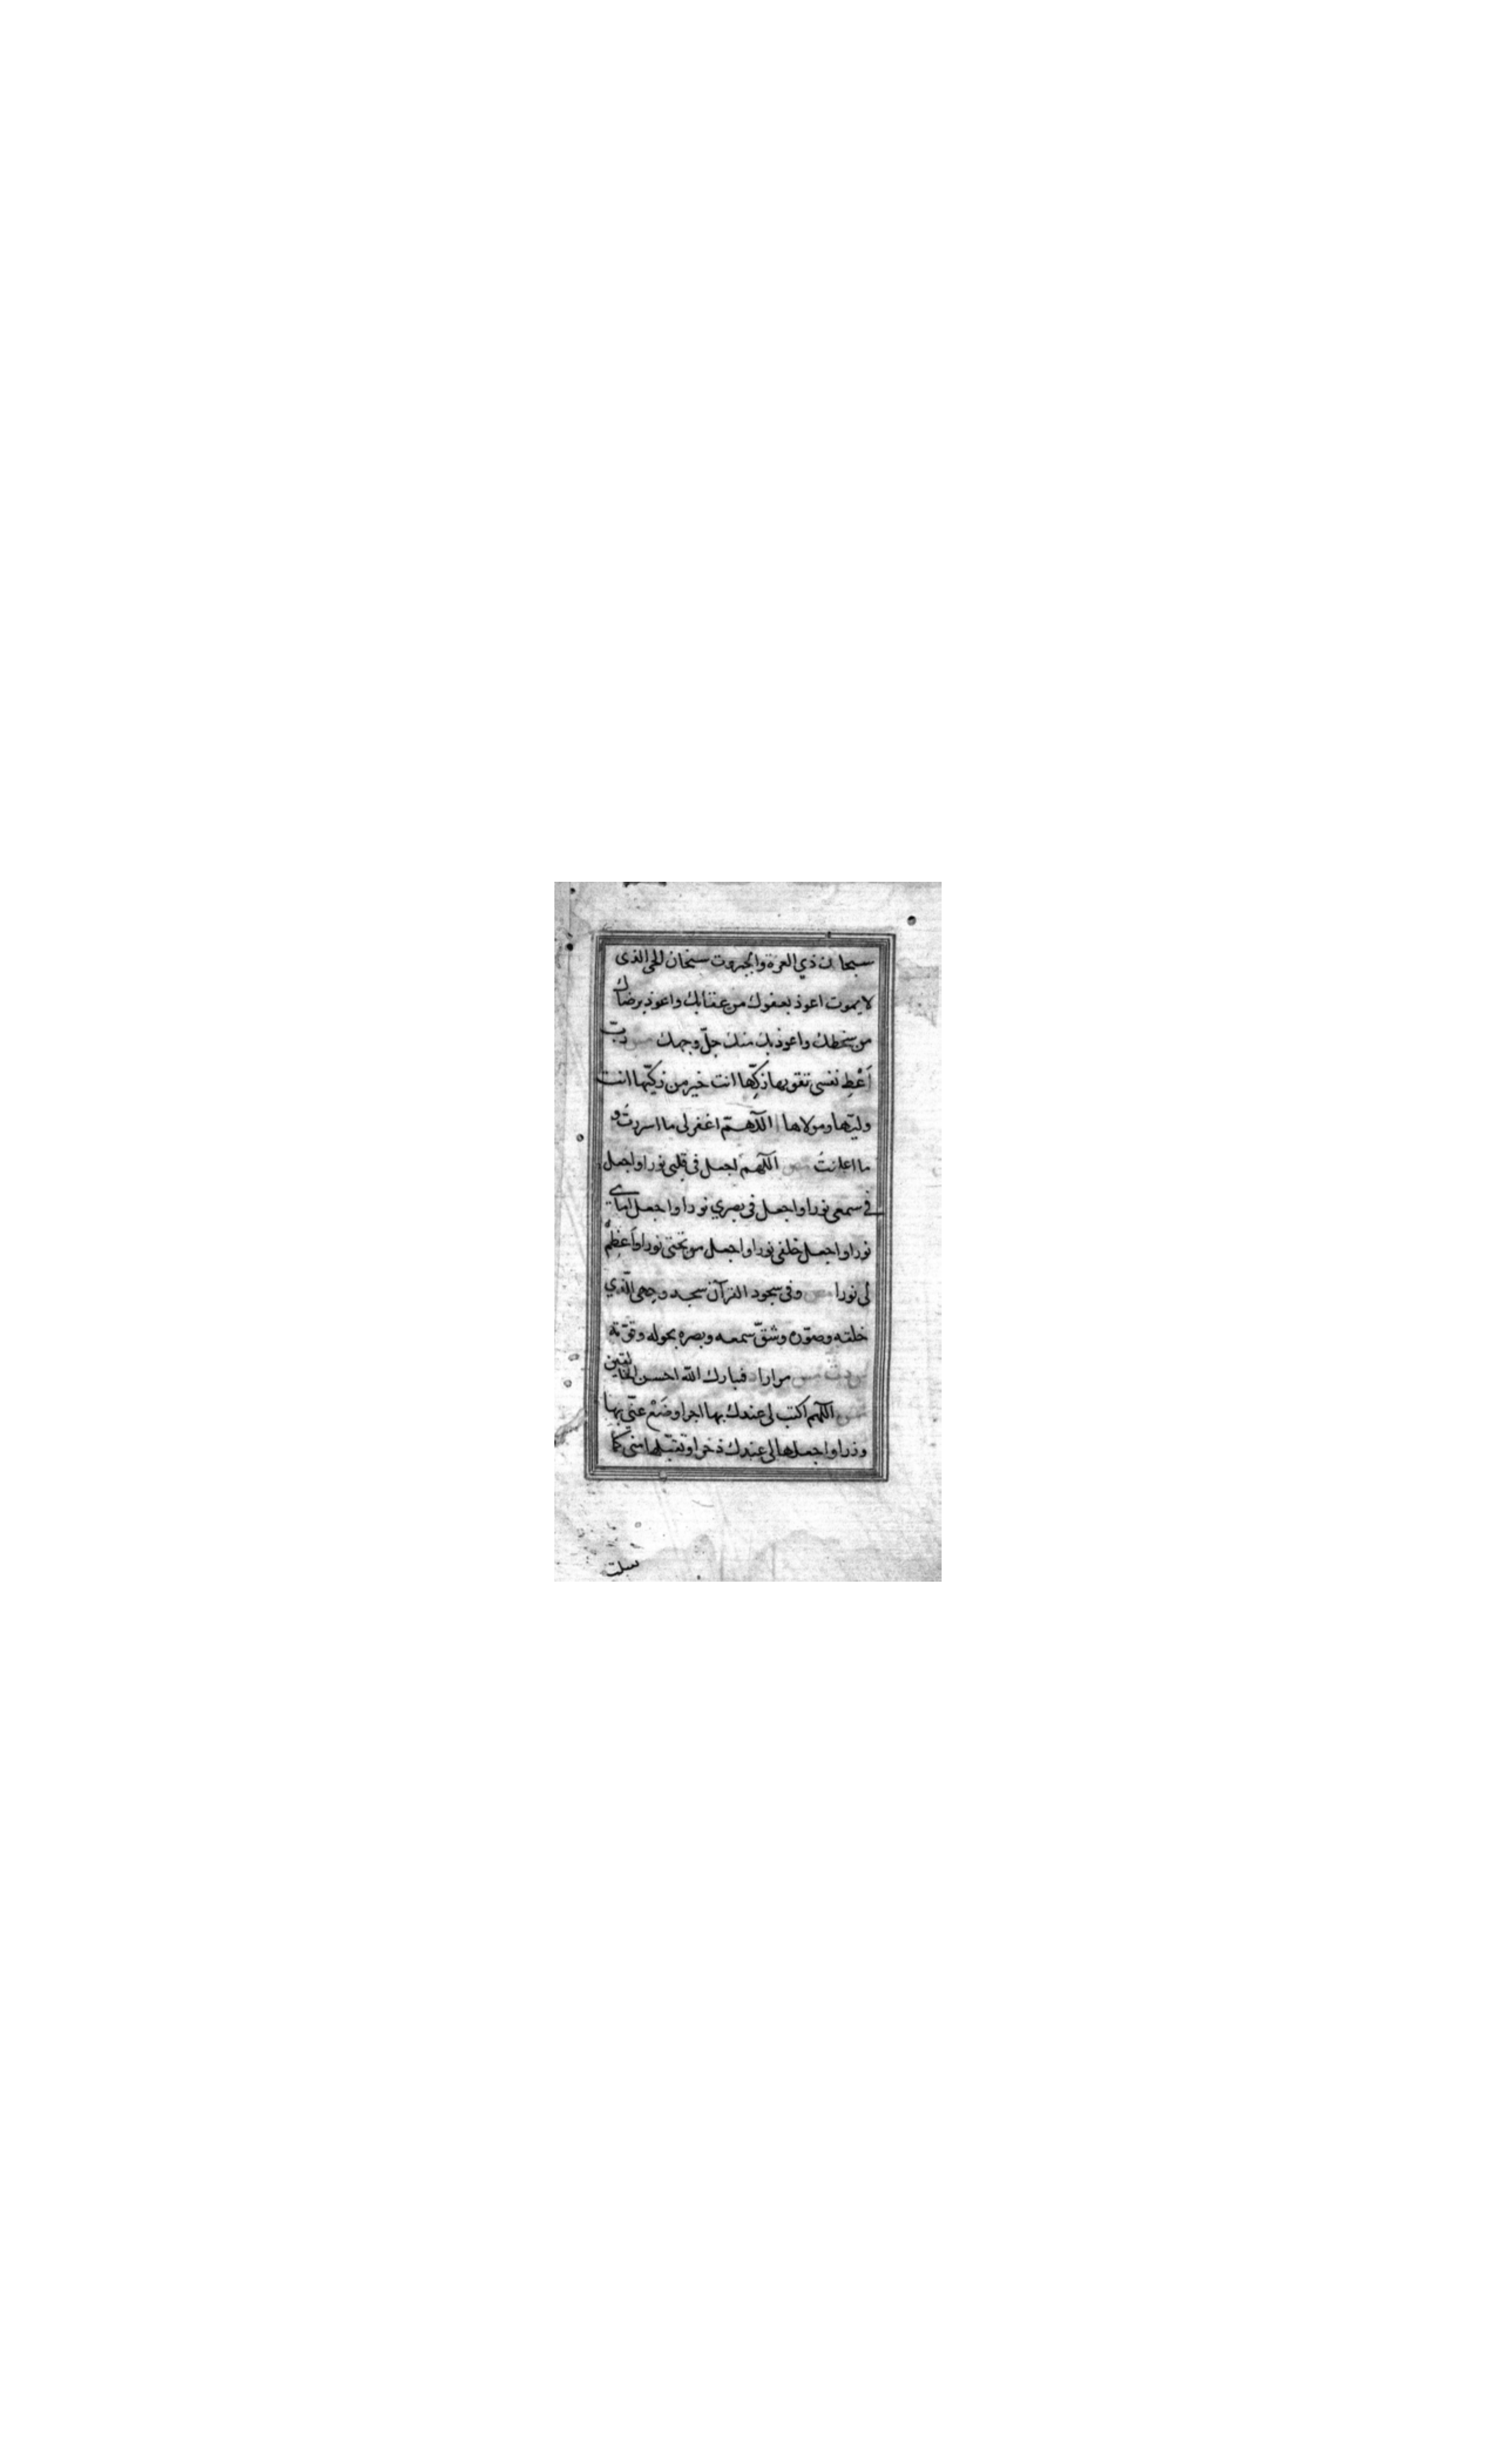 سبحان ذي العزة والجبروت سبحان الحي الذى
لا يموت اعوذ بعفوك من عقابك واعوذ برضاك
من سخطك واعوذ بك منك جلّ وجهك مس ربّ
اَعْطِ نفسى تقويها زكِّها انت خير من زكيّها انت
وليّها ومولاها اللّهمّ اغفر لى ما اسررتُ و
ما اعلنتُ مص اللّهم اجعل فى قلبى نورا واجعل
فى سمعى نورا واجعل فى بصرى نورا واجعل امامى
نورا واجعل خلفى نورا واجعل من تحتى نورا واَعْظِمْ
لى نورا مص وفى سجود القرآن سجد وجهى الّذي
خلقه وصوّره وشقّ سمعه وبصره بحوله وقوّته
مس مرارا د فتبارك الله احسن الخالقين
مس اللّهم اكتب لى عندك بها اجرا وضَعْ عنّى بها
وزرا واجعلها لى عندك ذخرا وتقبّلها منّى كما